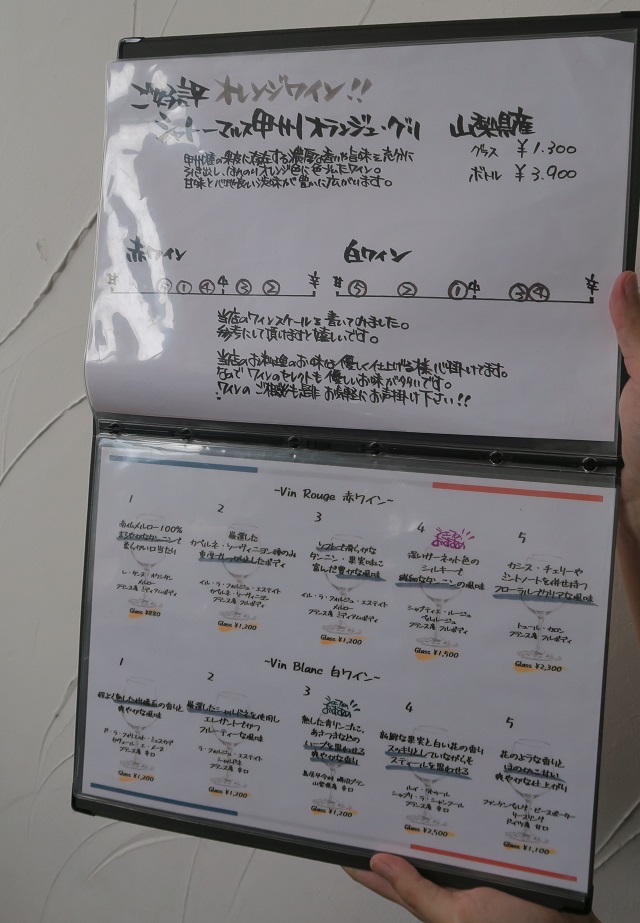 ご好評 オレンジワイン!!
シャトーマルス甲州オランジュ・グリ 山梨県産
グラス ¥1.300
ボトル ¥3.900
甲州種の果皮に存在する濃厚な香りや旨味を充分に
引き出し、ほんのりオレンジ色に色づいたワイン。
甘味とバランス良い渋味が豊かに広がります。
赤ワイン 白ワイン
甘 ⑤①④中③② 辛 甘 ⑤ ② ①中 ③④ 辛
当店のワインスケールを書いてみました。
参考にして頂けますと嬉しいです。
当店のお料理のお味は優しく仕上げる様、心掛けてます。
なので ワインのセレクトも優しいお味が多いです。
ワインの ご相談も是非 お気軽に お声掛け下さい!!
~Vin Rouge 赤ワイン~
1
南仏メルロー100%
まろやかなタンニンで
柔らかい口当たり
フランス産 ミディアムボディ
Glass ¥880
2
厳選した
カベルネ・ソーヴィニヨン種のみ
重厚でしっかりとしたボディ
イル・ラ・フォルジュ・エステイト
カベルネ・ソーヴィニヨン
フランス産 フルボディ
Glass ¥1,200
3
ソフトで滑らかな
タンニン・果実味に
富んだ豊かな風味
イル・ラ・フォルジュ・エステイト
メルロー
フランス産 ミディアムボディ
Glass ¥1,200
4
深いガーネット色の
シルキーで
繊細なタンニンの風味
シャプティエ・ルージュ
ベルルージュ
フランス産 フルボディ
Glass ¥1,500
5
カシス・チェリーや
ミントノートを併せ持つ
フローラルでクリアな風味
トュール・カロン
フランス産 フルボディ
Glass ¥2,300
~Vin Blanc 白ワイン~
1
程よく熟した柑橘系の香りと
爽やかな風味
フランス産 辛口
Glass ¥1,200
2
厳選したシャルドネを使用し
エレガントでかつ
フルーティーな風味
ラ・フォルジュ・エステイト
シャルドネ
フランス産 辛口
Glass ¥1,200
3
熟した青リンゴに、
あさつきなどの
ハーブを思わせる
爽やかな香り
山梨県産 辛口
Glass ¥1,200
4
新鮮な果実と白い花の香り
スッキリとしていながらも
スティールを思わせる
ルイ・ラトゥール
シャブリ・ラ・シャンフルール
フランス産 辛口
Glass ¥2,500
5
花のような香りと
ほのかに甘い
爽やかな仕上がり
リースリング
ドイツ産 甘口
Glass ¥1,100